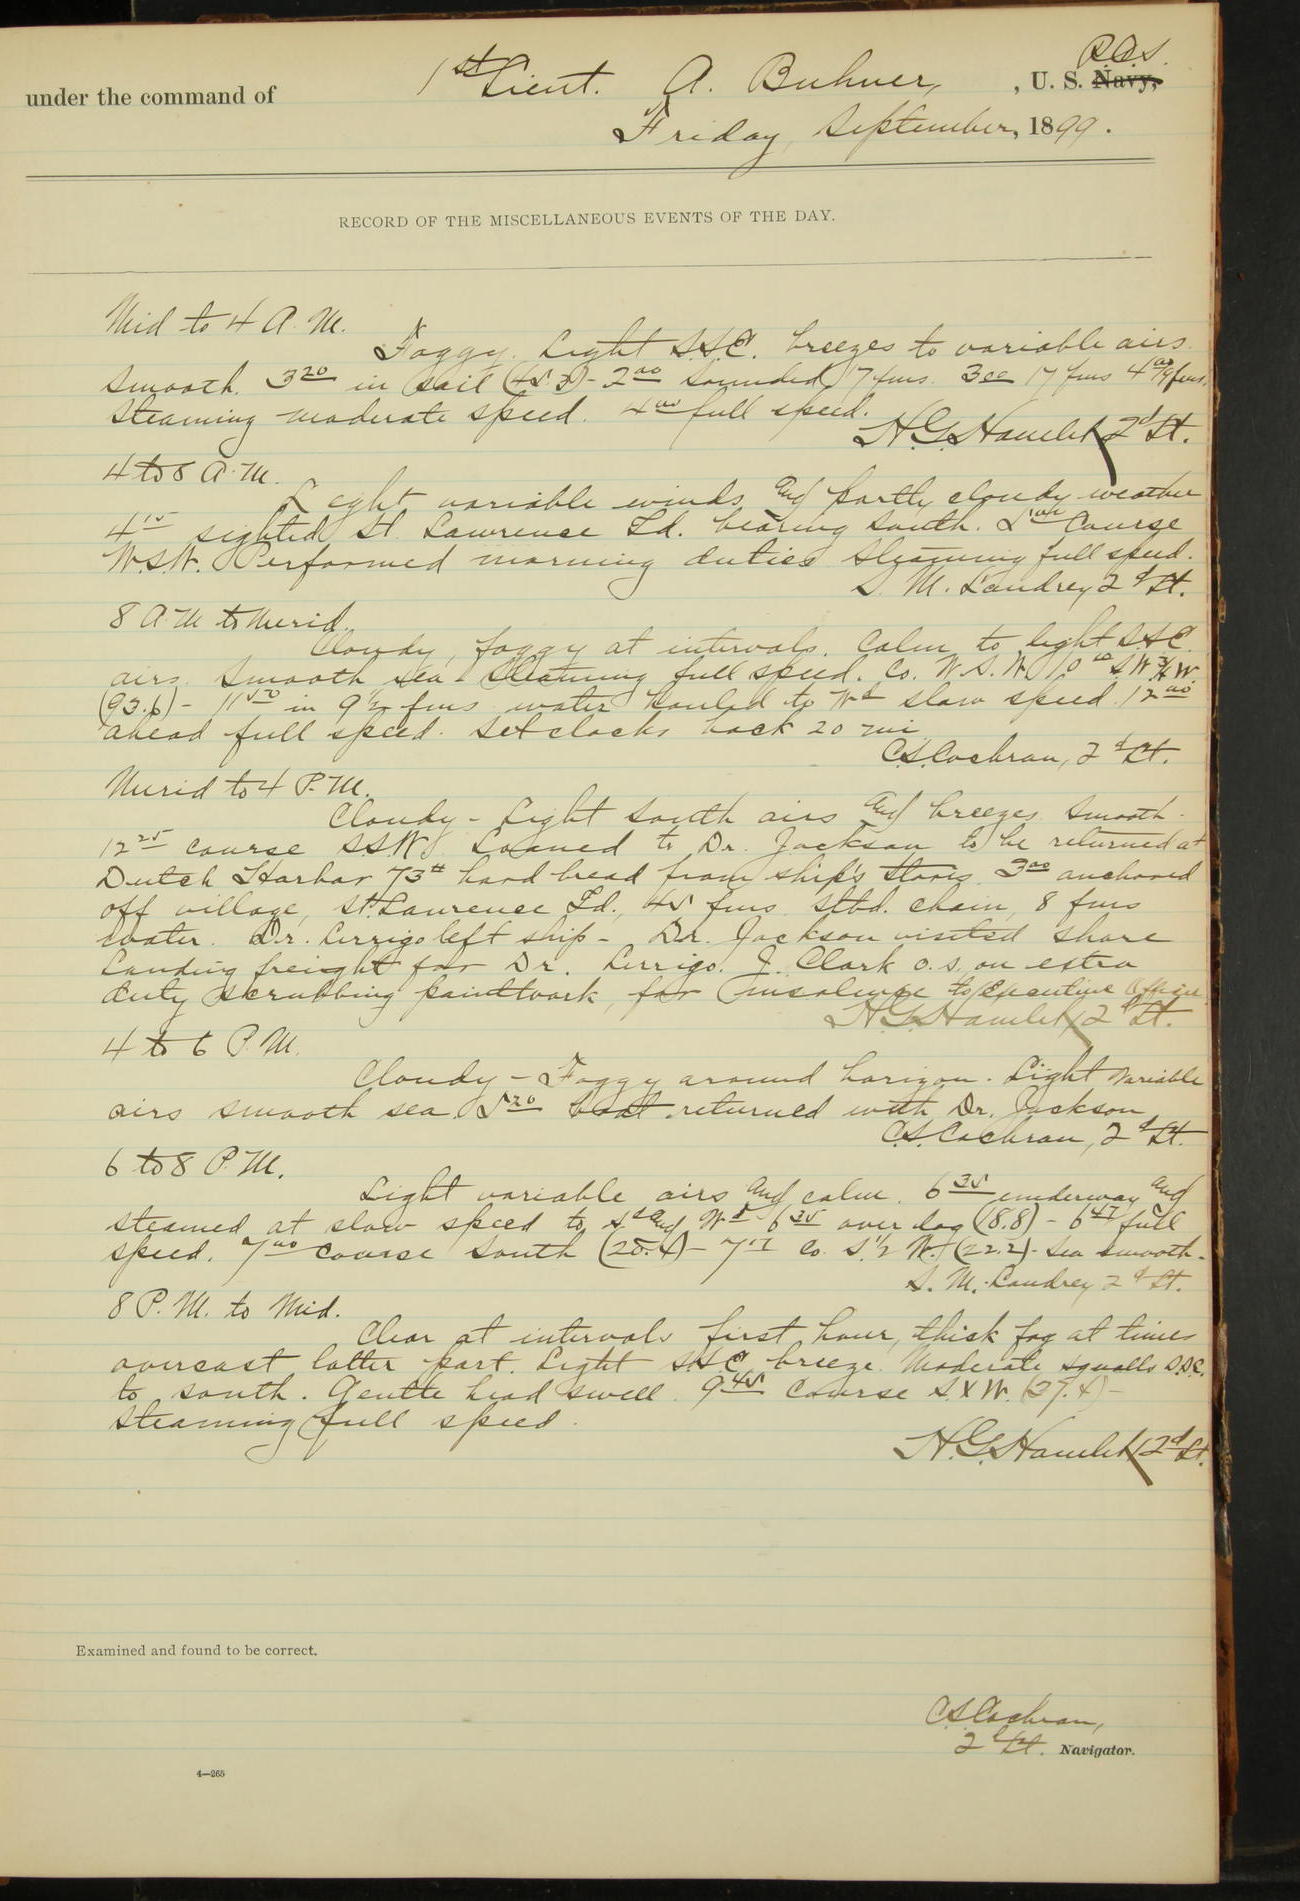 under the command of 1st Lieut. A. Buhner, , U. S. Navy, R.C.S.
Friday, September, 1899.
RECORD OF THE MISCELLANEOUS EVENTS OF THE DAY.
Mid to 4 A. M.
Foggy. Light S.S.E. breezes to variable airs.
Smooth. 3 20 in sail (45.3) - 2 00 sounded 17 fms. 3 00 17 fms 4 00 fms.
Steaming moderate speed. 4 00 full speed.
H.G. Hamlet 2d Lt.
4 to 8 A. M.
Light variable winds and partly cloudy weather
4 15 sighted St. Lawrence Id. bearing South. 5 00 Course
W.S.W. Performed morning duties Steaming full speed.
S. M. Landrey 2d Lt.
8 A M to Merid.
Cloudy, foggy at intervals. Calm to light S.S.E.
airs. Smooth sea. Steaming full speed. Co. W.S.W. 10 10 S.W. ¾ W.
(93.6) - 11 50 in 9½ fms water hauled to Wd slow speed. 12 00
ahead full speed. Set clocks back 20 mi
C.S. Cochran, 2d Lt.
Merid to 4 P. M.
Cloudy - Light South airs and breezes. Smooth.
12 25 course S.S.W. Loaned to Dr. Jackson to be returned at
Dutch Harbor 73 # hard bread from ship's stores. 3 00 anchored
off village, St. Lawrence Id., 45 fms stbd. chain, 8 fms
water. Dr. Lerrigo left ship - Dr. Jackson visited shore
Landing freight for Dr. Lerrigo. J. Clark o.s. on extra
duty scrubbing paintwork, for insolence to Executive Officer
H.G. Hamlet 2d Lt.
4 to 6 P. M.
Cloudy - Foggy around horizon. Light variable
airs smooth sea. 5 20 boat returned with Dr. Jackson
C.S. Cochran, 2d Lt.
6 to 8 P. M.
Light variable airs and calm. 6 35 underway and
steamed at slow speed to Sd and Wd 6 35 over log (18.8) - 6 47 full
speed. 7 00 course South (20.4) - 7 17 Co. S. ½ W. (22.2) - Sea smooth -
S. M. Landrey 2d Lt.
8 P. M. to Mid.
Clear at intervals first hour, thick fog at times
overcast latter part. Light S.S.E. breeze. Moderate squalls S.S.E.
to south. Gentle head swell. 9 45 Course S. x W. (37.4) -
Steaming full speed.
H.G. Hamlet 2d Lt.
Examined and found to be correct.
C.S. Cochran,
2d Lt. Navigator.
4—265